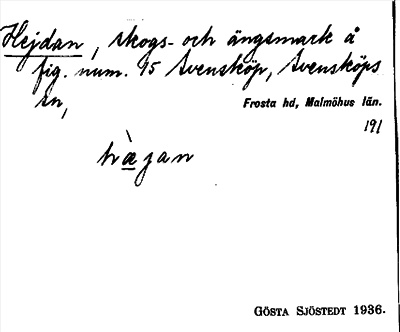 Hejdan, skogs- och ängsmark å
fig. num. 15 Svensköp, Svensköps
sn,
Frosta hd, Malmöhus län.
191
hæ̀jan
GÖSTA SJÖSTEDT 1936.